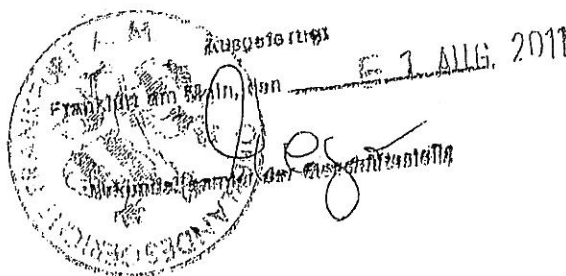 Ausgefertigt
Frankfurt am Main, den 1. AUG. 2011
Urkundsbeamter der Geschäftsstelle
OBERLANDESGERICHT FRANKFURT A. M.